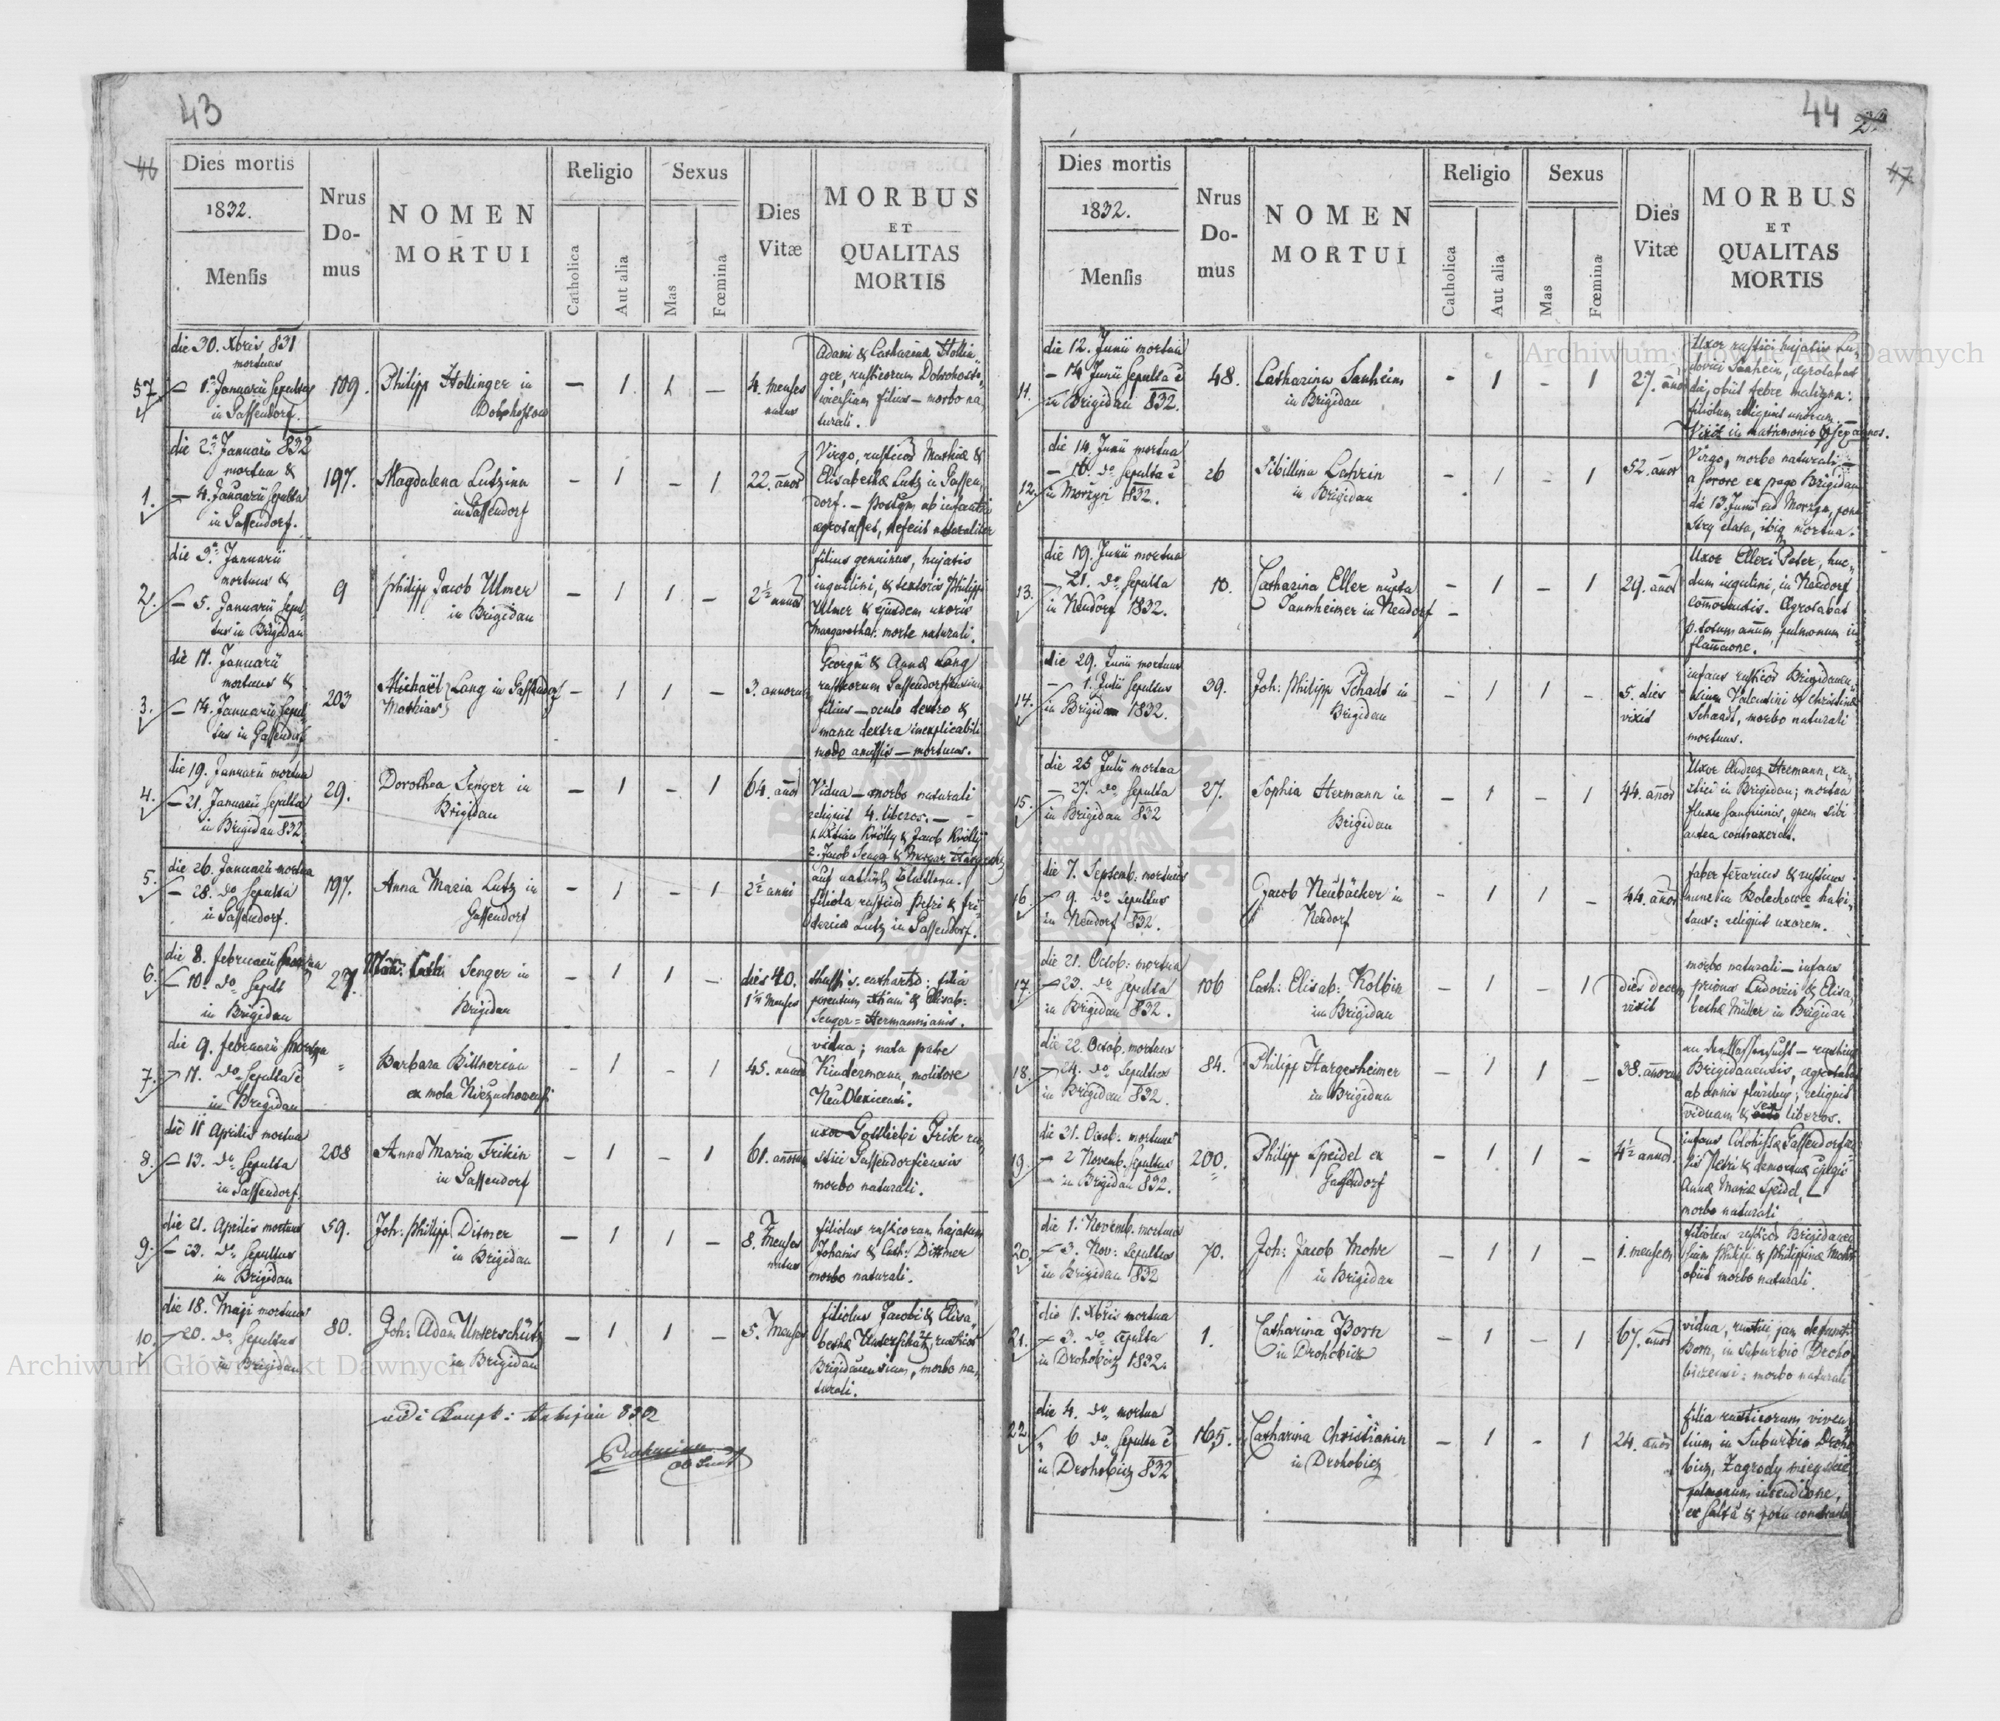 43
46
Dies mortis
1832.
Mensis
Nrus
Do-
mus
NOMEN
MORTUI
Religio
Catholica
Aut alia
Sexus
Mas
Fœmina
Dies
Vitæ
MORBUS
ET
QUALITAS
MORTIS
57
die 30. Xbris 831
mortuus
— 1. Januarii Sepultus
in Gassendorf.
109.
Philipp Hollinger in
— 1 1 —
4. menses
natus
Adami & Catharina Hollin-
ger, rusticorum
filius — morbo na-
turali.
1.
die 2. Januarii 832
mortua &
— 4. Januarii Sepulta
in Gassendorf.
197.
Magdalena Lutzinn
in Gassendorf
— 1 — 1
22. años
Virgo, rusticor Mathiæ &
Elisabethæ Lutz in Gassen-
dorf. —
2.
die 3. Januarii
mortuus &
— 5. Januarii Sepul-
tus in Brigidau
9
Philipp Jacob Ulmer
in Brigidau
— 1 1 —
2½ annos
filius genuinus, hujatis
inquilini, & textoris Philipp
Ulmer & ejusdem uxoris
Margaretha: morte naturali.
3.
die 11. Januarii
mortuus &
— 14. Januarii Sepul-
tus in Gassendorf
203
Michaël Lang in Gassendorf
Mathias
— 1 1 —
3. annorum
Georgii & Annæ Lang
rusticorum Gassendorfensium
filius — oculo dextro &
manu dextra inexplicabili
modo amissis — mortuus.
4.
die 19. Januarii mortua
— 21. Januarii Sepulta
in Brigidau 832
29.
Dorothea Senger in
Brigidau
— 1 — 1
64. años
Vidua — morbo naturali
reliquit 4. liberos. —
5.
die 26. Januarii mortua
— 28. do Sepulta
in Gassendorf.
197.
Anna Maria Lutz in
Gassendorf
— 1 — 1
2½ anni
filiola rusticor Petri & Fri-
dericæ Lutz in Gassendorf.
6.
die 8. februarii mortua
— 10. do Sepult
in Brigidau
27.
Senger in
Brigidau
— 1 1 —
dies 40.
1½ Menses
Senger = Hermannianis.
7.
die 9. februarii mortua
— 11. do Sepulta è
in Brigidau
Barbara Bittnerian
ex mola
— 1 — 1
45. annos
vidua; nata patre
Kindermann, molitore
8.
die 11 Aprilis mortua
— 13. do Sepulta
in Gassendorf.
208
Anna Maria Frikin
in Gassendorf
— 1 — 1
61. annorum
uxor Gottliebi Frik ru-
stici Gassendorfiensis
morbo naturali.
9.
die 21. Aprilis mortuus
— 23. do Sepultus
in Brigidau
59.
Joh: Philipp Ditmer
in Brigidau
— 1 1 —
8. Menses
natus
filiolus rusticorum hujatum
Johanis & Cath: Dittmer
morbo naturali.
10.
die 18. Maji mortuus
— 20. do Sepultus
in Brigidau
80.
Joh: Adam Unterschütz
in Brigidau
— 1 1 —
5. Menses
filiolus Jacobi & Elisa-
bethæ Unterschütz, rusticor
Brigidauensium, morbo na-
turali.
44
47
Dies mortis
1832.
Mensis
Nrus
Do-
mus
NOMEN
MORTUI
Religio
Catholica
Aut alia
Sexus
Mas
Fœmina
Dies
Vitæ
MORBUS
ET
QUALITAS
MORTIS
11.
die 12. Junii mortua
— 14 Junii Sepulta è
in Brigidau 832.
48.
Catharina Sauheim
in Brigidau
- 1 - 1
27. años
Uxor rustici hujatis Lu-
dovici Sauheim, ægrotabat
diu, obiit febre maligna:
filiolum reliquit unicum.
Vixit in matrimonio Septem annos.
12.
die 14. Junii mortua
— 16. do Sepulta è
in Morszyn 1832.
26
Sibillina Lahrin
in Brigidau
- 1 - 1
52. años
Virgo, morbo naturali —
a sorore ex pago Brigidau
die 13. Junii ad Morszyn,
13.
die 19. Junii mortua
— 21. do Sepulta
in Neudorf 1832.
10.
Catharina Eller nupta
Tannheimer in Neudorf
— 1 — 1
29. años
Uxor Elleri Peter, huc-
dum inquilini, in Neudorf
comorantis. Ægrotabat
p. totum anum pulmonum in-
flamacione.
14.
die 29. Junii mortuus
— 1. Julii Sepultus
in Brigidau 1832.
39.
Joh: Philipp Schadt in
Brigidau
— 1 1 —
5. dies
vixit
infans rusticor Brigidauen-
sium Valentini & Christinæ
Schaadt, morbo naturali
mortuus.
15.
die 25 Julii mortua
— 27. do Sepulta
in Brigidau 832
27.
Sophia Hermann in
Brigidau
— 1 — 1
44. años
Uxor Andreæ Hermann, ru-
stici in Brigidau; mortua
fluxu sanguinis, quem sibi
antea contraxerat.
16
die 7. Septemb: mortuus
— 9. do Sepultus
in Neudorf 832.
Jacob Neubäcker in
Neudorf
— 1 1 —
44. años
faber ferarius & rusticus
nunc in Bolechow habi-
tans: reliquit uxorem.
17
die 21. Octob: mortua
— 23. do Sepulta
in Brigidau 832.
106
Cath: Elisab: Kolbin
in Brigidau
— 1 — 1
dies decem
vixit
morbo naturali — infans
Ludovici & Elisa-
bethæ Müller in Brigidau
18.
die 22. Octob. mortuus
— 24. do Sepultus
in Brigidau 832.
84.
Philipp Hargesheimer
in Brigidau
— 1 1 —
38. annorum
an der Wassersucht — rusticus
Brigidauensis, ægrotabat
ab annis pluribus; reliquit
viduam & sex liberos.
19.
die 31. Octob. mortuus
— 2 Novemb. Sepultus
— in Brigidau 832.
200.
Philipp Speidel ex
Gassendorf
— 1 1 —
4½ annos.
Annæ Mariæ Speidel, —
morbo naturali
20.
die 1. Novemb. mortuus
— 3. Nov: Sepultus
in Brigidau 832
70.
Joh: Jacob Mohr
in Brigidau
— 1 1 —
1. mensem
filiolus rusticor Brigidauen-
sium Philipp & Philippinæ Mohr
obiit morbo naturali.
21.
die 1. Xbris mortua
— 3. do Sepulta
in Drohobicz 1832.
1.
Catharina Born
in Drohobicz
— 1 — 1
67. años
vidua, rustici jam defuncti
Born, in Suburbio Droho-
biczensi: morbo naturali
22.
die 4. do mortua
„ 6 do Sepulta è
in Drohobicz 832
165.
Catharina Christianin
in Drohobicz
— 1 - 1
24. años
filia rusticorum viven-
tium in Suburbio Droho-
bicz, Zagrody mieyskie
pulmonum incendione,
ex saltu & potu contracta
Archiwum Główne Akt Dawnych
Archiwum Główne Akt Dawnych